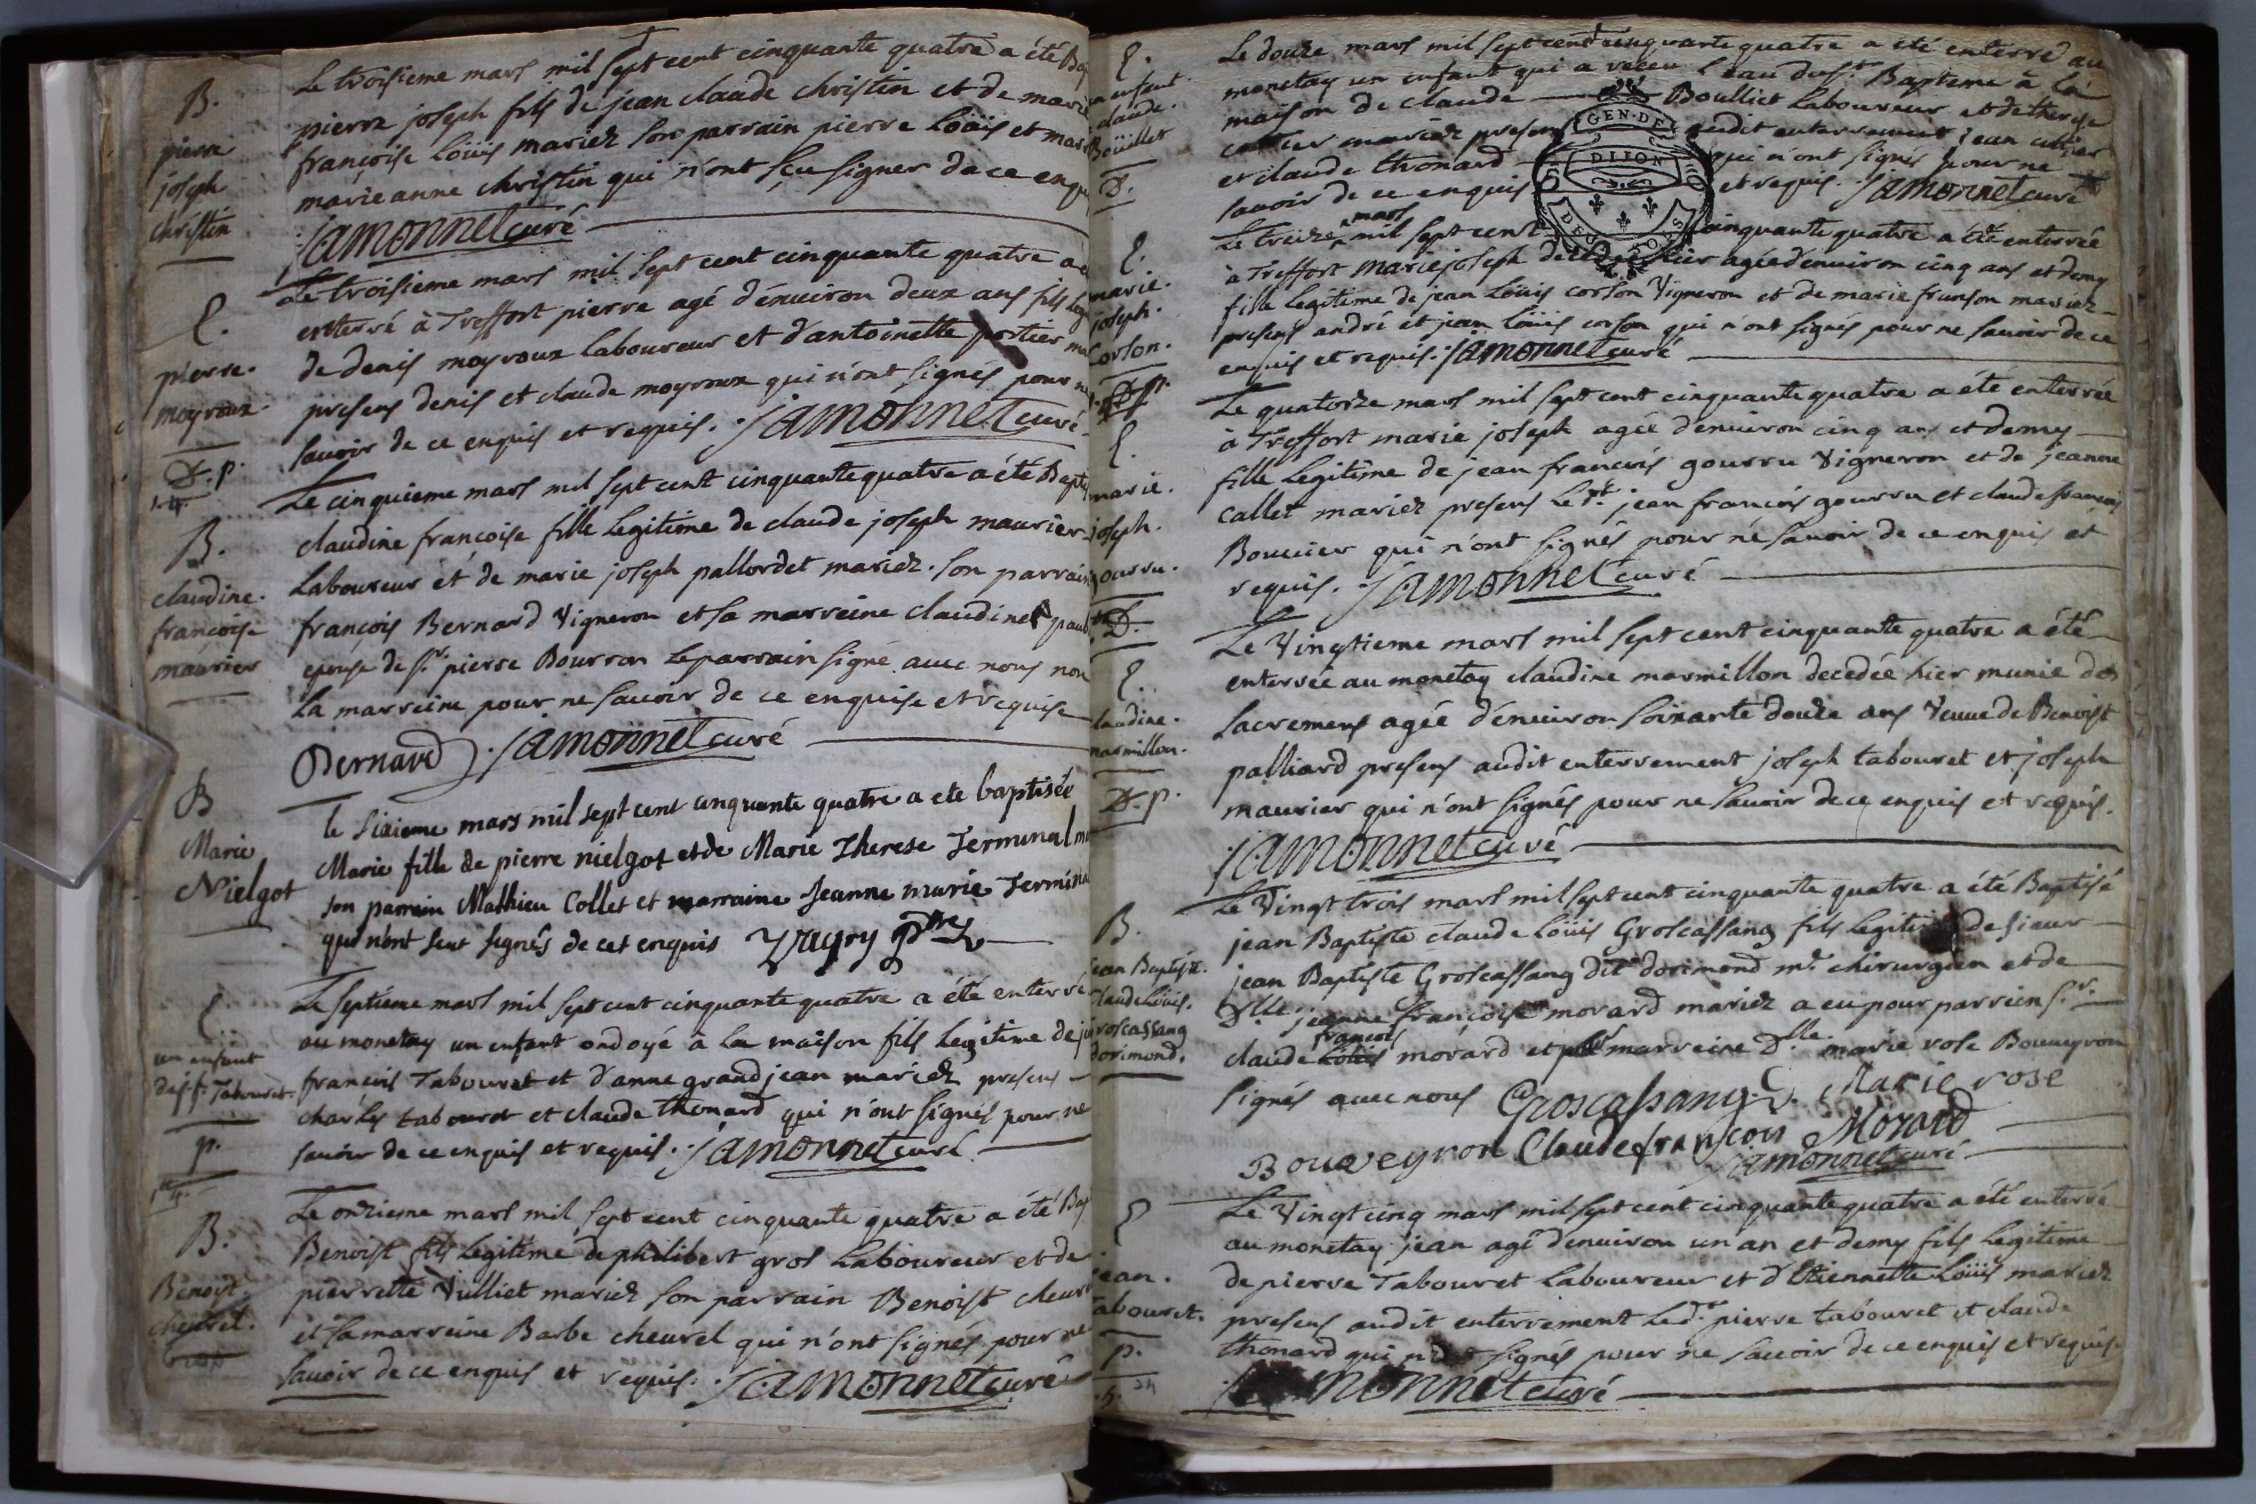 B.
pierre
joseph
christin
Le troisieme mars mil sept cent cinquante quatre a été Bap
pierre joseph fils de jean claude christin et de marie
françoise Loüis mariez son parrain pierre Loüis et mar
marie anne christin qui n'ont sçu signer de ce enqu
Jamonnet curé
E.
pierre.
moyroux.
D. p.
Le troisieme mars mil sept cent cinquante quatre a é
enterré à Treffort pierre agé d'énuiron deux ans fils leg
de denis moyroux laboureur et d'antoinette portier ma
presens denis et claude moyroux qui n'ont signés pour n
sauoir de ce enquis et requis. Jamonnet curé
B.
claudine.
françoise
maurier
Le cinquieme mars mil sept cent cinquante quatre a été Bapt
claudine françoise fille legitime de claude joseph maurier
Laboureur et de marie joseph pallordet mariez. son parrain
françois Bernard Vigneron et sa marreine claudine
epouse de Sr. pierre Bourron le parrain signe auec nous non
la marreine pour ne sauoir de ce enquise et requise
Bernard Jamonnet curé
B
Marie
Nielgot
le sixieme mars mil sept cent cinquante quatre a ete baptisée
Marie fille de pierre nielgot et de Marie Therese Terminal m
son parrain Mathieu Collet et marraine Jeanne marie Termina
qui n'ont seut signés de cet enquis
E.
un enfant
de j. f. Tabouret.
p.
Le septieme mars mil sept cent cinquante quatre a été enterré
au monetay un enfant ondoyé à la maison fils legitime de j
francois Tabouret et d'anne grandjean mariez presens
charles tabouret et claude thonard qui n'ont signés pour ne
sauoir de ce enquis et requis. Jamonnet curé
B.
Benoist.
cheurel.
Le onzieme mars mil sept cent cinquante quatre a été Bap
Benoist fils legitime de philibert gros Laboureur et de
pierrette Vulliet mariez son parrain Benoist cheur
et sa marreine Barbe cheurel qui n'ont signés pour ne
sauoir de ce enquis et requis. Jamonnet curé
E.
enfant
claude.
Boüillet
D.
Le douze mars mil sept cent cinquante quatre a été enterré au
monetay un enfant qui a receu l'eau du St. Bapteme à la
maison de claude Boulliet Laboureur et de therese
mariez presens audit enterrement jean
et claude thonard qui n'ont signés pour ne
sauoir de ce enquis et requis. Jamonnet curé
GEN. DE
DIJON
DEUX SOLS
E.
marie.
joseph.
corson.
Le treize mars mil sept cent cinquante quatre a été enterrée
à Treffort marie joseph decedée hier agée d'enuiron cinq ans et demy
fille legitime de jean Loüis corson Vigneron et de marie franson mariez
presens andré et jean Loüis corson qui n'ont signés pour ne sauoir de ce
enquis et requis. Jamonnet curé
E.
marie.
joseph.
gourru.
D.
Le quatorze mars mil sept cent cinquante quatre a été enterrée
à Treffort marie joseph agée d'enuiron cinq ans et demy
fille legitime de jean francois gourru Vigneron et de jeanne
callet mariez presens le dt. jean francois gourru et claude francois
Bouuier qui n'ont signés pour ne sauoir de ce enquis et
requis. Jamonnet curé
E.
claudine.
marmillon.
D. p.
Le Vingtieme mars mil sept cent cinquante quatre a été
enterrée au monetay claudine marmillon decedée hier munie des
sacremens agée d'énuiron soixante douze ans Veuue de Benoist
palliard presens audit enterrement joseph tabouret et joseph
maurier qui n'ont signés pour ne sauoir de ce enquis et requis.
Jamonnet curé
B.
jean Baptiste.
claude Loüis.
Groscassang
dorimond.
Le Vingt trois mars mil sept cent cinquante quatre a été Baptisé
jean Baptiste claude Loüis Groscassang fils legitime de sieur
jean Baptiste Groscassang dit dorimond me. chirurgien et de
Dlle jeanne françoise morard mariez a eu pour parrein Sr.
claude francois morard et marreine Dlle. marie rose Boueyron
signés auec nous Groscassang. Marie rose
Boueyron Claude françois Morard
Jamonnet curé
E
jean.
tabouret.
p.
Le Vingt cinq mars mil sept cent cinquante quatre a été enterré
au monetay jean agé d'enuiron un an et demy fils legitime
de pierre Tabouret laboureur et d'Etiennette Loüis mariez
presens audit enterrement le dt. pierre tabouret et claude
thonard qui n'ont signés pour ne sauoir de ce enquis et requis.
Jamonnet curé